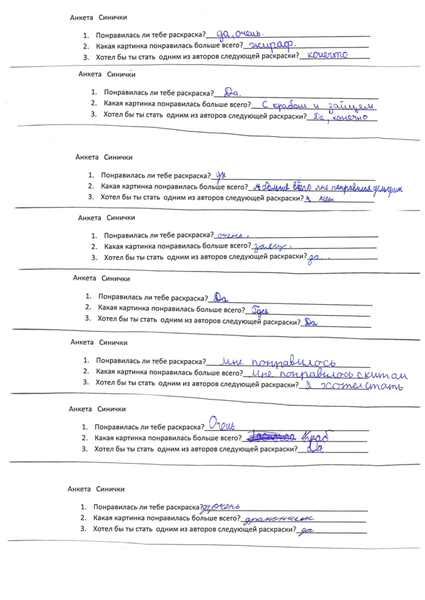 Анкета Синички
1. Понравилась ли тебе раскраска? да, очень.
2. Какая картинка понравилась больше всего? жираф.
3. Хотел бы ты стать одним из авторов следующей раскраски? конечто
Анкета Синички
1. Понравилась ли тебе раскраска? Да.
2. Какая картинка понравилась больше всего? С крабом и зайцем
3. Хотел бы ты стать одним из авторов следующей раскраски? Да, конечно
Анкета Синички
1. Понравилась ли тебе раскраска? да
2. Какая картинка понравилась больше всего? мне понравился дельфин
3. Хотел бы ты стать одним из авторов следующей раскраски?
Анкета Синички
1. Понравилась ли тебе раскраска? очень.
2. Какая картинка понравилась больше всего? заяц.
3. Хотел бы ты стать одним из авторов следующей раскраски? да.
Анкета Синички
1. Понравилась ли тебе раскраска? Да
2. Какая картинка понравилась больше всего? Гусь
3. Хотел бы ты стать одним из авторов следующей раскраски? Да
Анкета Синички
1. Понравилась ли тебе раскраска? Мне понравилось
2. Какая картинка понравилась больше всего? Мне понравилось скитом
3. Хотел бы ты стать одним из авторов следующей раскраски? Я хотел стать
Анкета Синички
1. Понравилась ли тебе раскраска? Очень
2. Какая картинка понравилась больше всего? Краб
3. Хотел бы ты стать одним из авторов следующей раскраски? Да
Анкета Синички
1. Понравилась ли тебе раскраска? очень
2. Какая картинка понравилась больше всего? дракончик
3. Хотел бы ты стать одним из авторов следующей раскраски? да